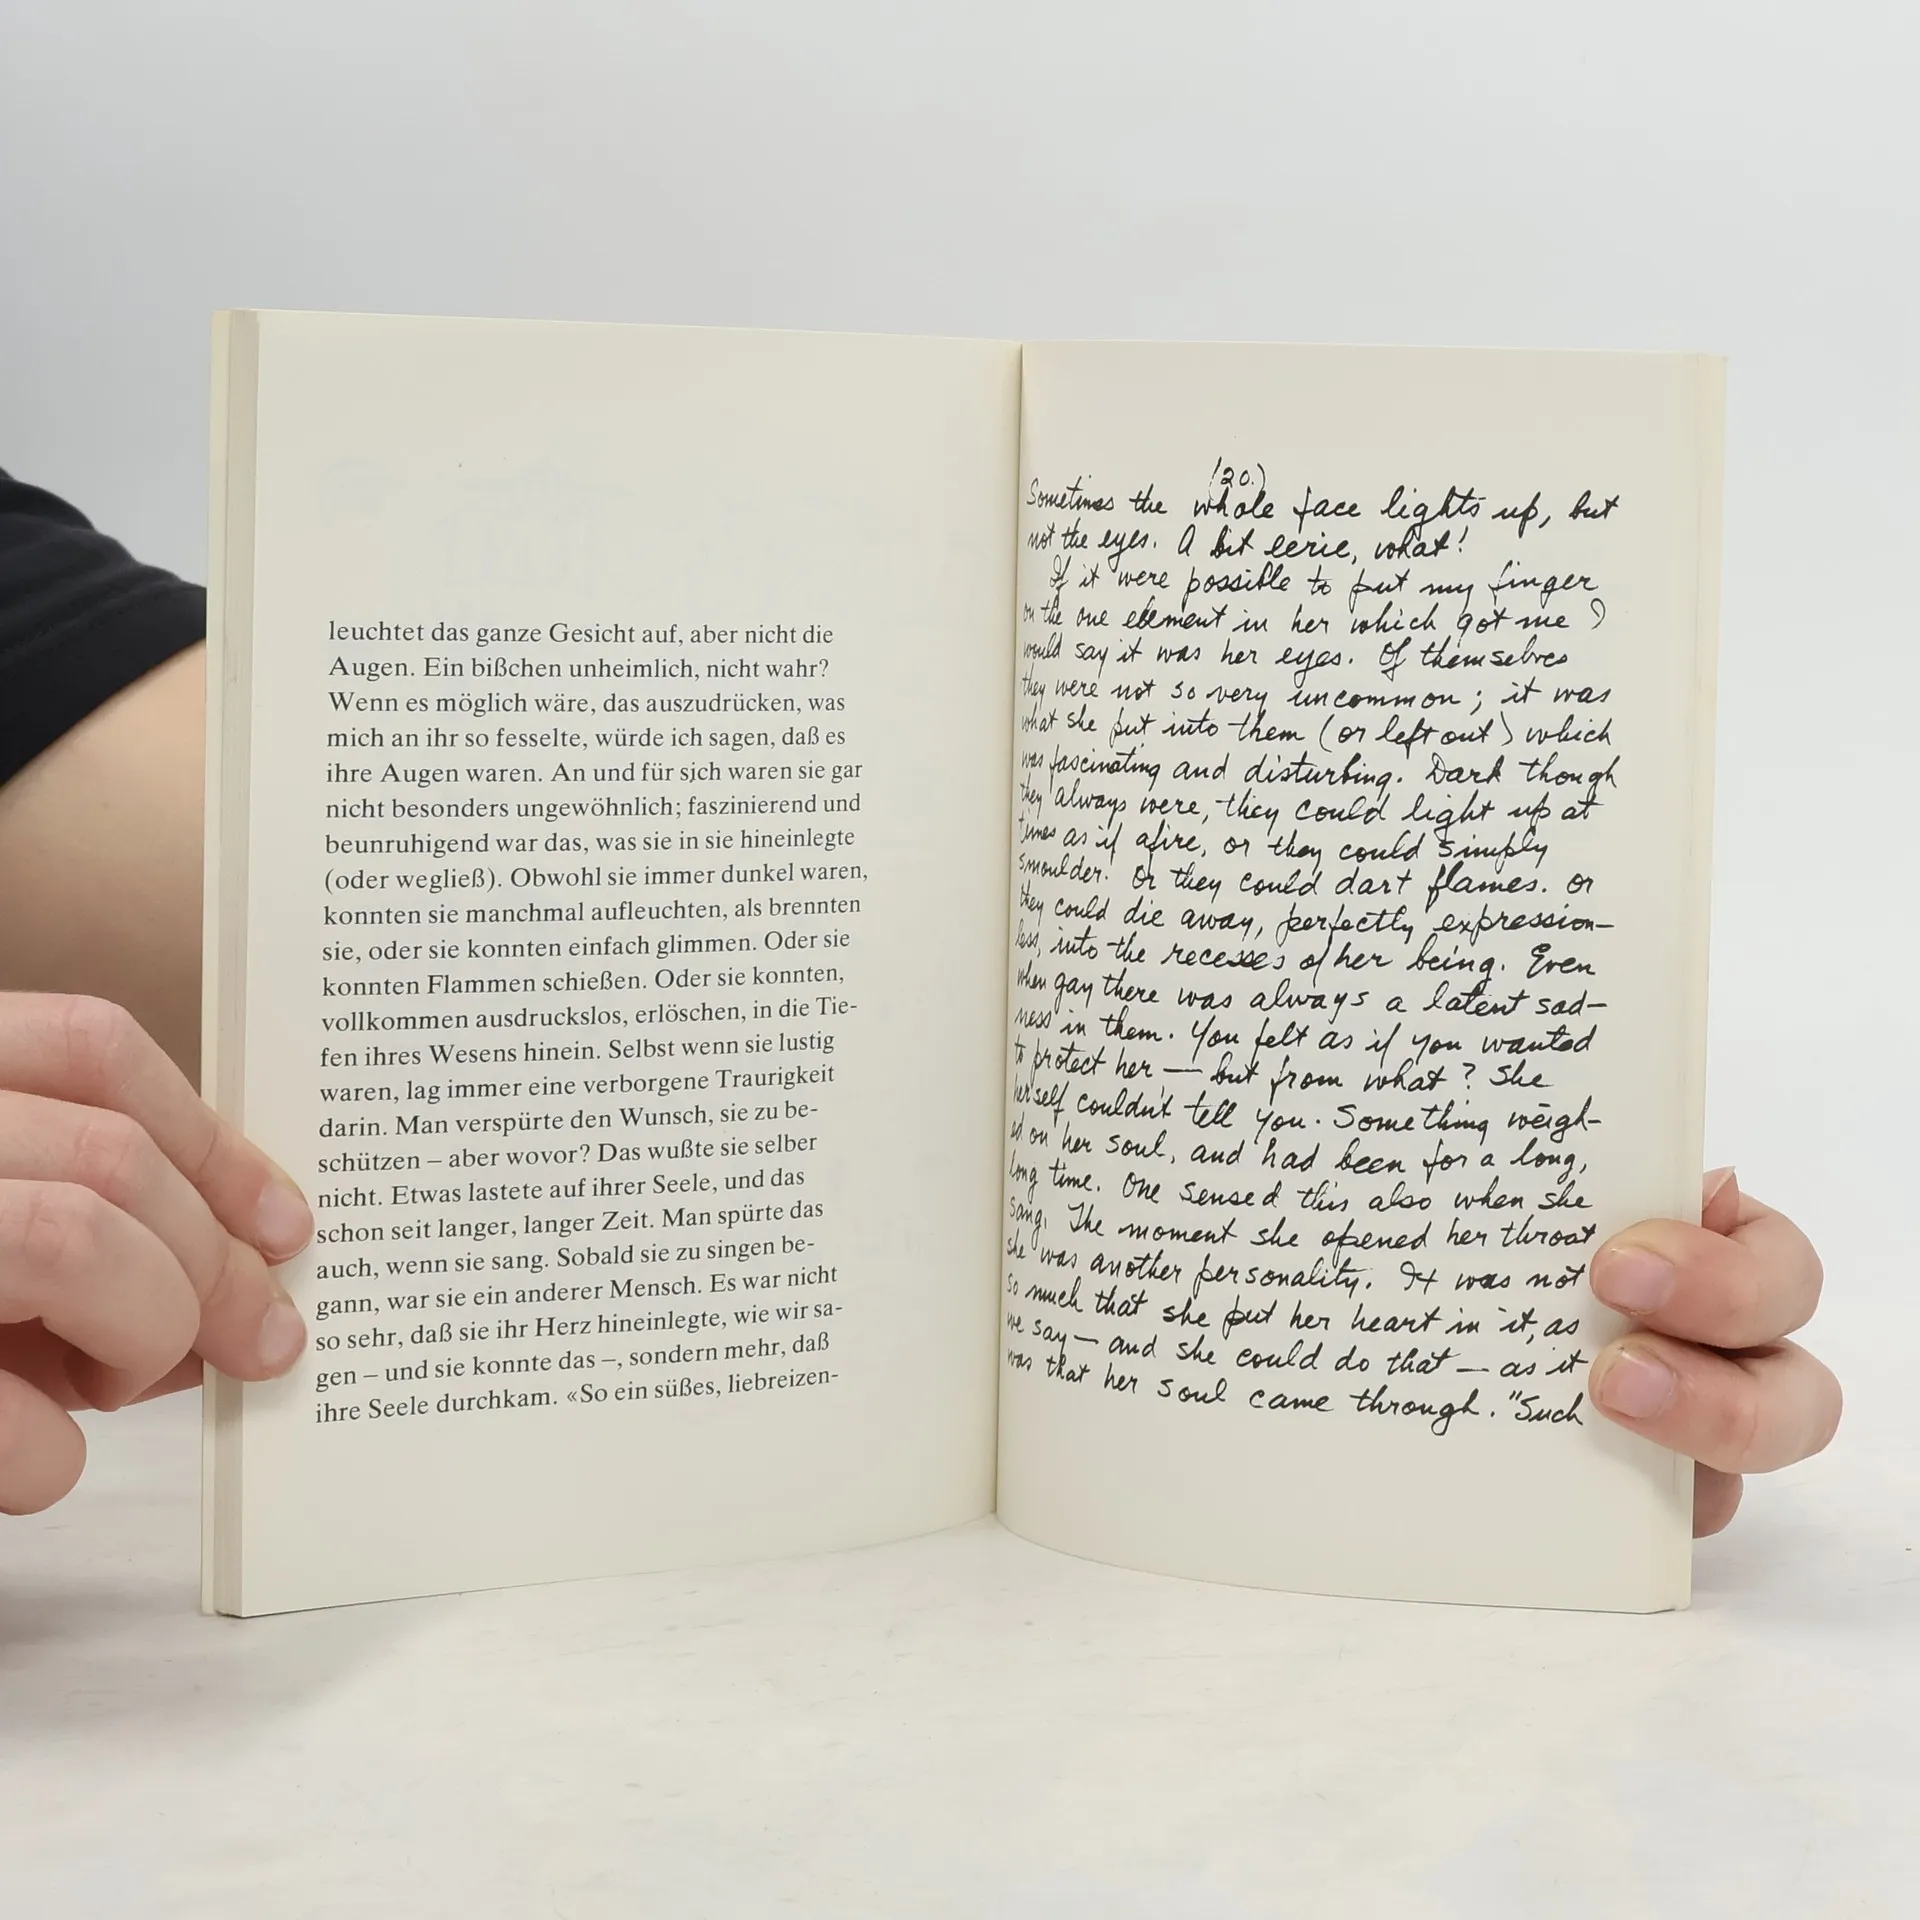 leuchtet das ganze Gesicht auf, aber nicht die
Augen. Ein bißchen unheimlich, nicht wahr?
Wenn es möglich wäre, das auszudrücken, was
mich an ihr so fesselte, würde ich sagen, daß es
ihre Augen waren. An und für sich waren sie gar
nicht besonders ungewöhnlich; faszinierend und
beunruhigend war das, was sie in sie hineinlegte
(oder wegließ). Obwohl sie immer dunkel waren,
konnten sie manchmal aufleuchten, als brennten
sie, oder sie konnten einfach glimmen. Oder sie
konnten Flammen schießen. Oder sie konnten,
vollkommen ausdruckslos, erlöschen, in die Tie-
fen ihres Wesens hinein. Selbst wenn sie lustig
waren, lag immer eine verborgene Traurigkeit
darin. Man verspürte den Wunsch, sie zu be-
schützen – aber wovor? Das wußte sie selber
nicht. Etwas lastete auf ihrer Seele, und das
schon seit langer, langer Zeit. Man spürte das
auch, wenn sie sang. Sobald sie zu singen be-
gann, war sie ein anderer Mensch. Es war nicht
so sehr, daß sie ihr Herz hineinlegte, wie wir sa-
gen – und sie konnte das –, sondern mehr, daß
ihre Seele durchkam. «So ein süßes, liebreizen-
(20.)
Sometimes the whole face lights up, but
not the eyes. A bit eerie, what!
If it were possible to put my finger
on the one element in her which got me I
would say it was her eyes. Of themselves
they were not so very uncommon; it was
what she put into them (or left out) which
was fascinating and disturbing. Dark though
they always were, they could light up at
times as if afire, or they could simply
smoulder. Or they could dart flames. Or
they could die away, perfectly expression-
less, into the recesses of her being. Even
when gay there was always a latent sad-
ness in them. You felt as if you wanted
to protect her — but from what? She
herself couldn't tell you. Something weigh-
ed on her soul, and had been for a long,
long time. One sensed this also when she
sang. The moment she opened her throat
she was another personality. It was not
so much that she put her heart in it, as
we say — and she could do that — as it
was that her soul came through. "Such